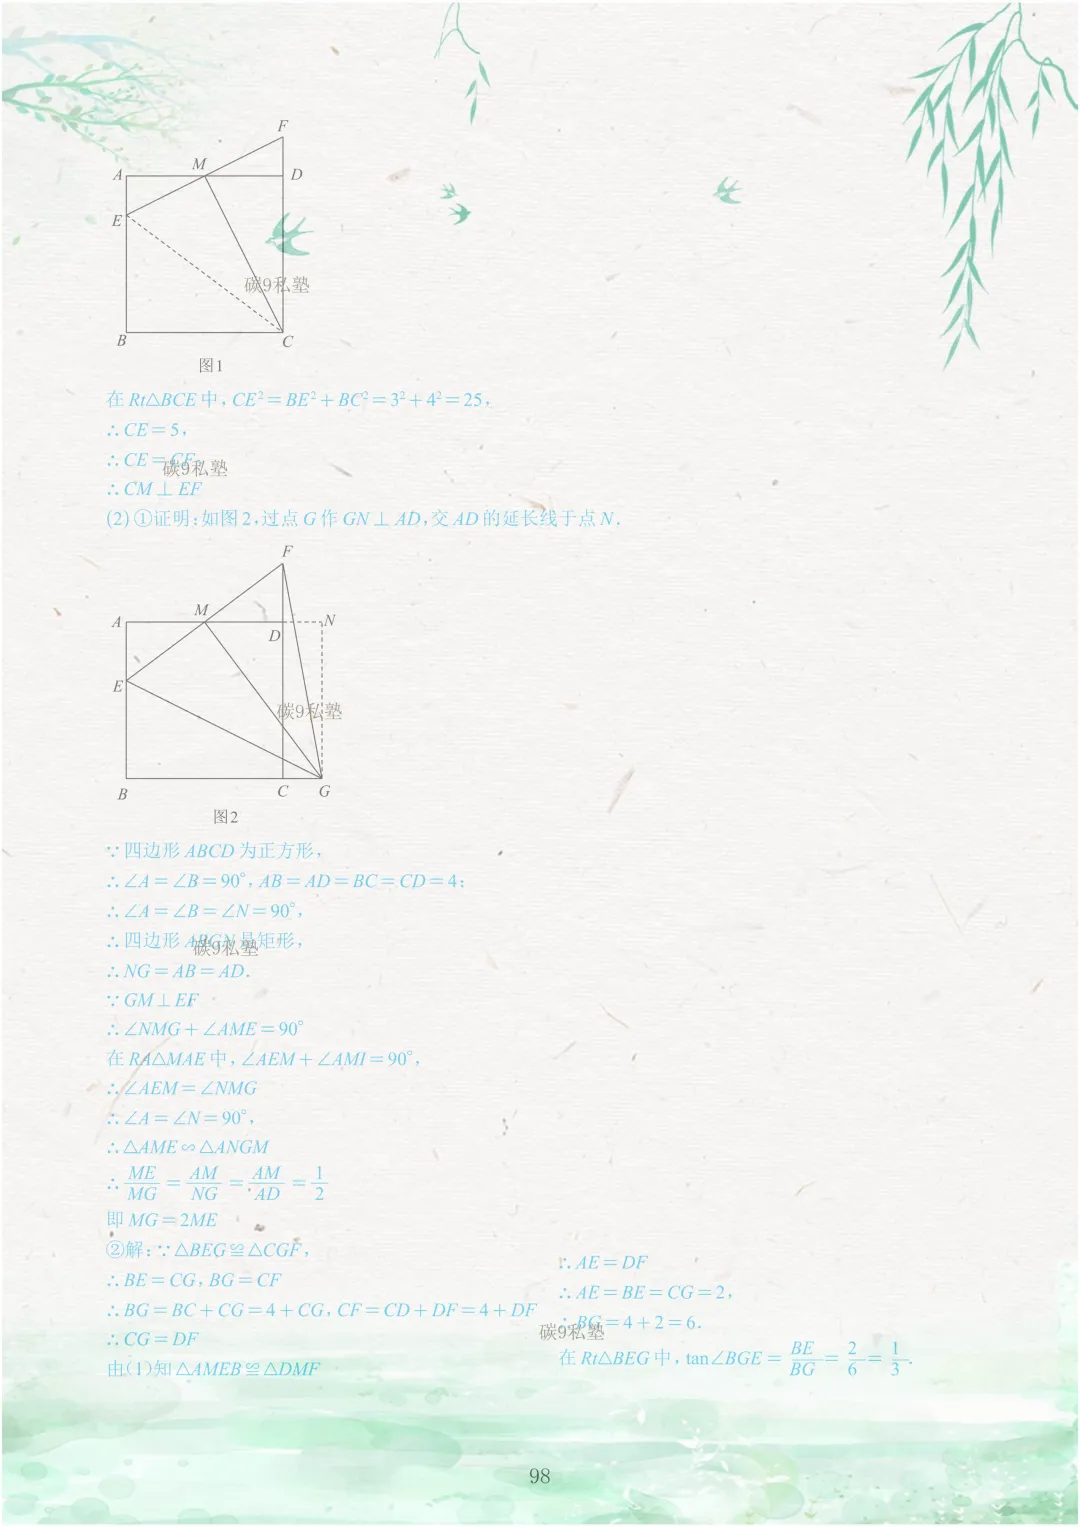 F
M
A
D
E
碳9私塾
B
C
图1
在 Rt△BCE 中, CE²=BE²+BC²=3²+4²=25,
∴CE=5,
∴CE=CF
碳9私塾
∴CM⊥EF
(2)①证明:如图2,过点G作GN⊥AD,交AD的延长线于点N.
F
M
A
N
D
E
碳9私塾
B
C
G
图2
∵四边形ABCD为正方形,
∴∠A=∠B=90°,AB=AD=BC=CD=4;
∴∠A=∠B=∠N=90°,
∴四边形ABGN是矩形,
碳9私塾
∴NG=AB=AD.
∵GM⊥EF
∴∠NMG+∠AME=90°
在RA△MAE中,∠AEM+∠AMI=90°,
∴∠AEM=∠NMG
∴∠A=∠N=90°,
∴△AME∽△ANGM
∴ME/MG=AM/NG=AM/AD=1/2
即MG=2ME
②解:∵△BEG≌△CGF,
∴BE=CG,BG=CF
∴BG=BC+CG=4+CG,CF=CD+DF=4+DF
∴CG=DF
由(1)知△AMEB≌△DMF
∴AE=DF
∴AE=BE=CG=2,
∴BG=4+2=6.
碳9私塾
在Rt△BEG中,tan∠BGE=BE/BG=2/6=1/3.
98